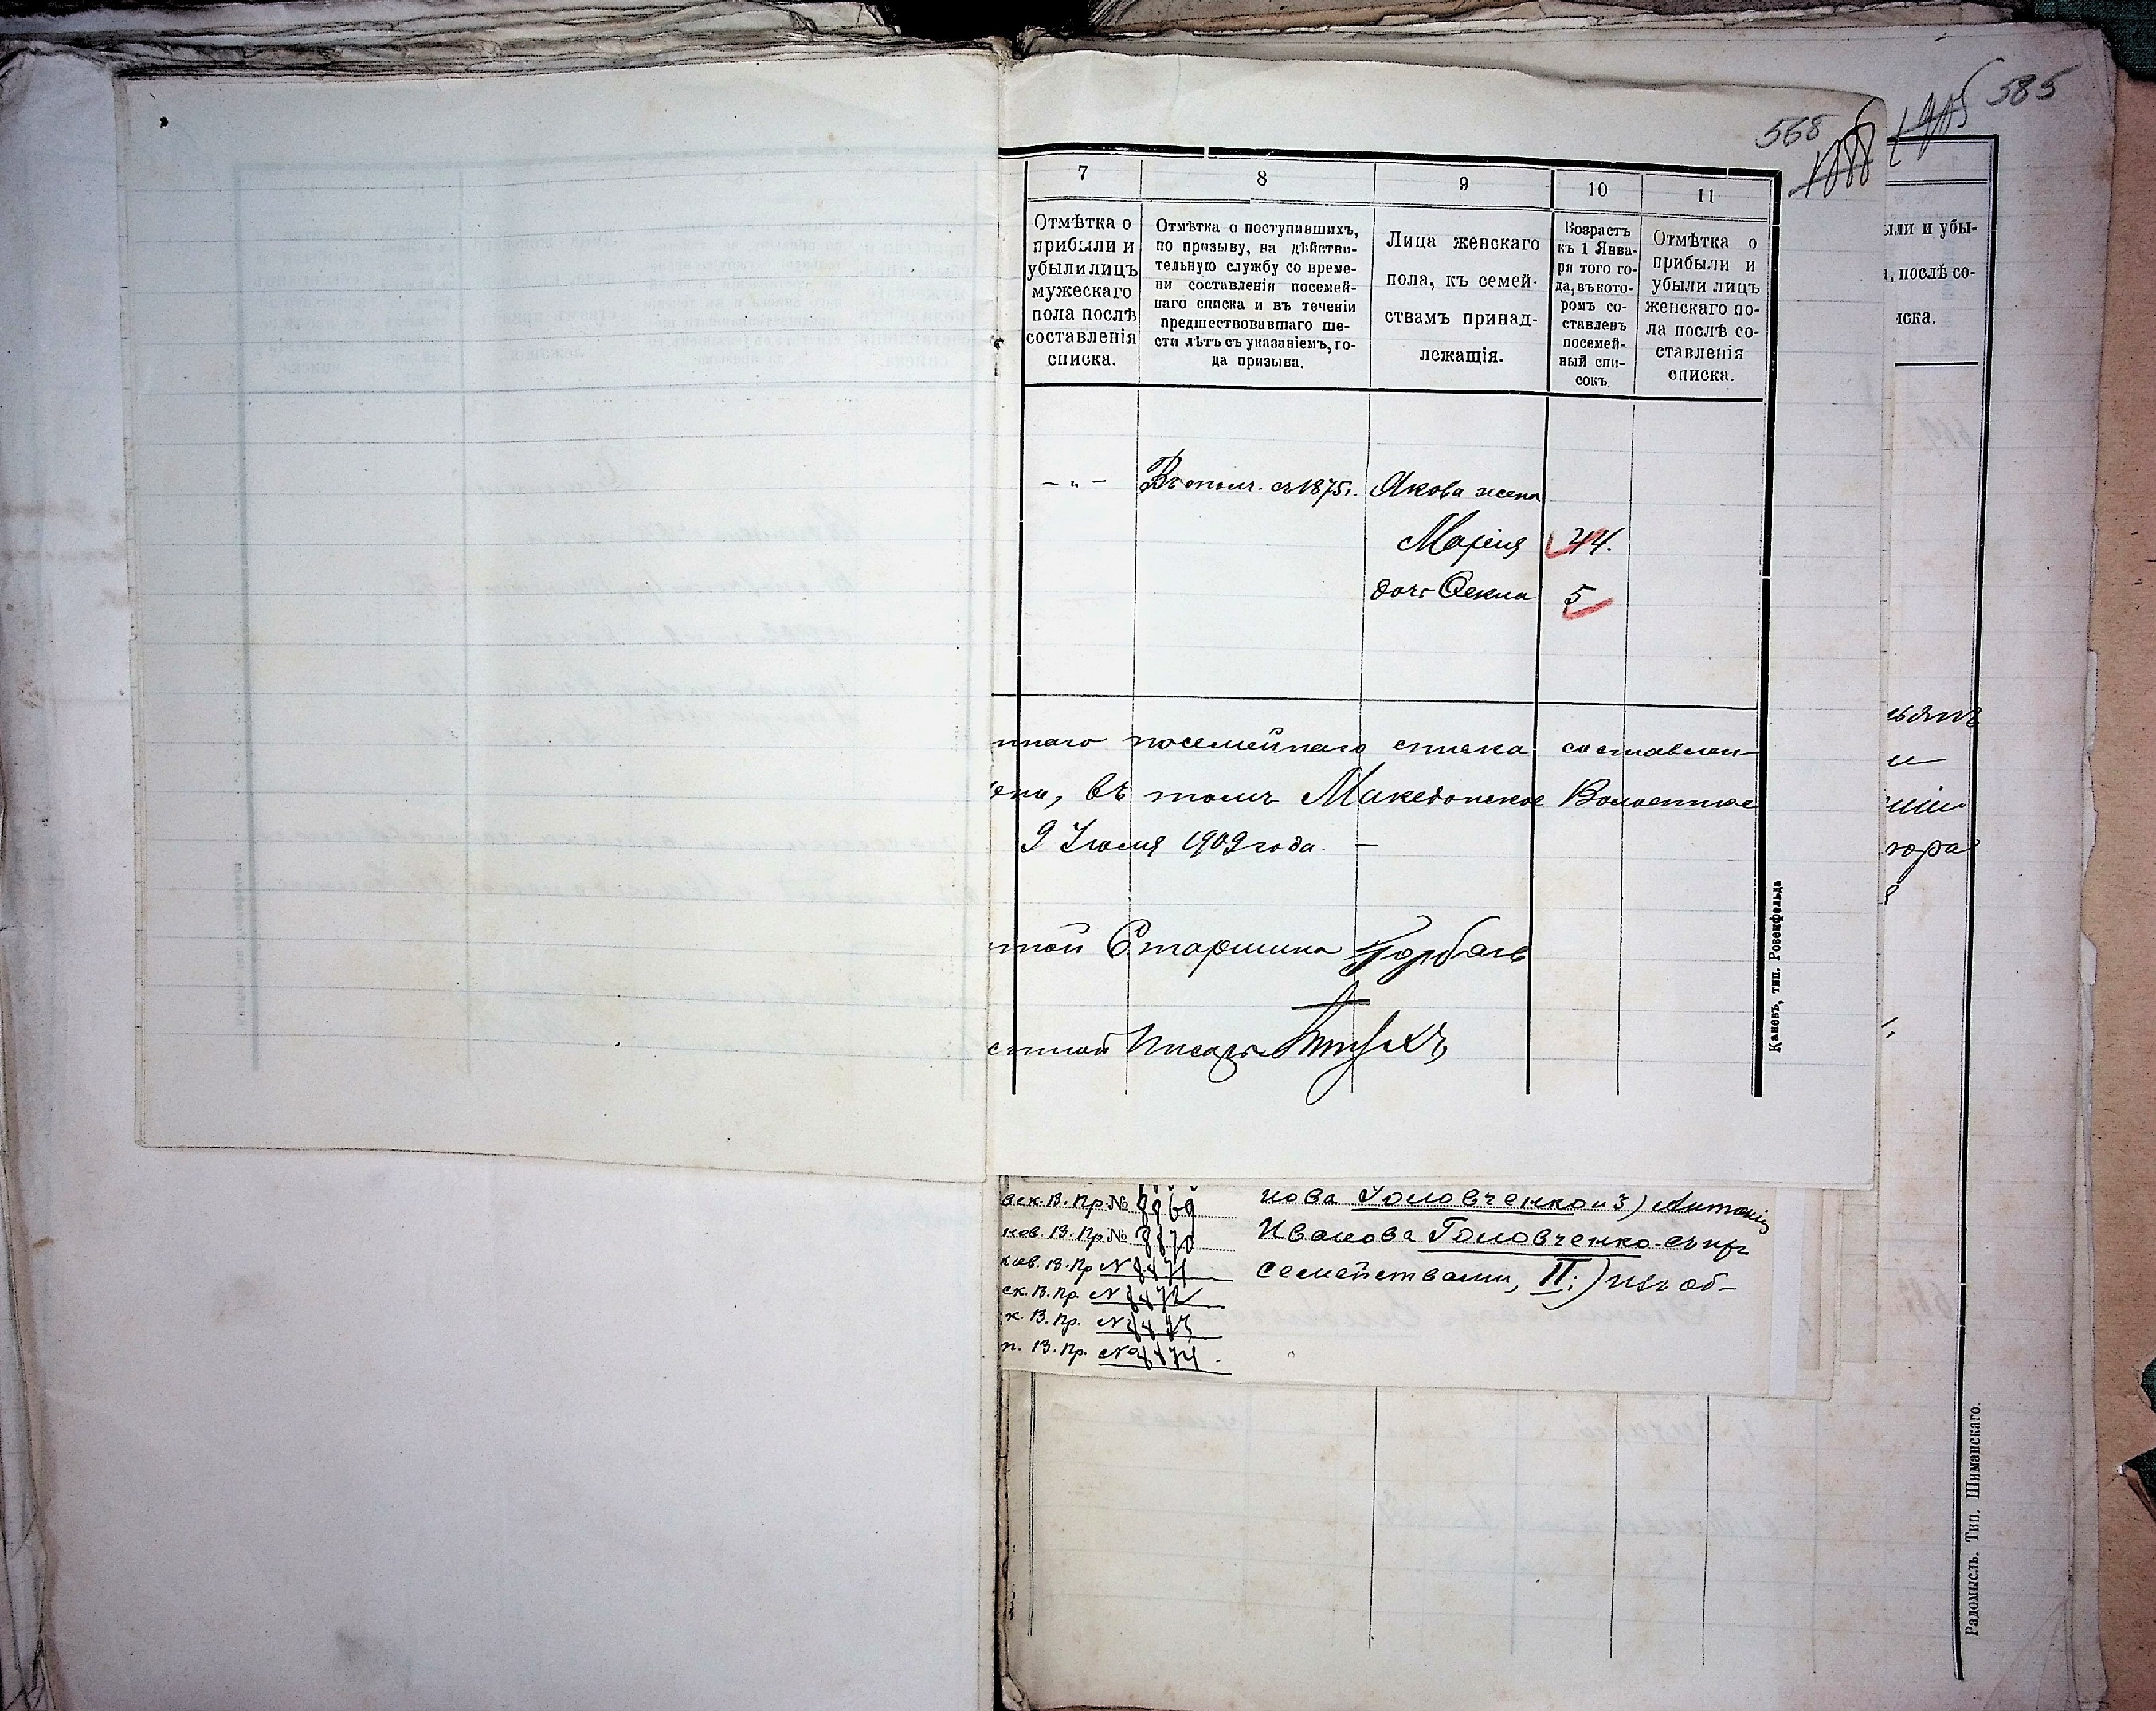 585
568
7
8
9
10
11
Отмѣтка о
прибыли и
убыли лицъ
мужескаго
пола послѣ
составленія
списка.
Отмѣтка о поступившихъ,
по призыву, на дѣйстви-
тельную службу со време-
ни составленія посемей-
наго списка и въ теченіи
предшествовавшаго ше-
сти лѣтъ съ указаніемъ, го-
да призыва.
Лица женскаго
пола, къ семей-
ствамъ принад-
лежащія.
Возрастъ
къ 1 Янва-
ря того го-
да, въ кото-
ромъ со-
ставленъ
посемей-
ный спи-
сокъ.
Отмѣтка о
прибыли и
убыли лицъ
женскаго по-
ла послѣ со-
ставленія
списка.
ыли и убы-
, послѣ со-
иска.
– „ – Въ ополч. съ 1875 г. Якова жена
Марія 44.
дочь Ѳекла 5
ннаго посемейнаго списка составлен-
ено, въ томъ Македонское Волостное
9 Іюля 1909 года. –
тной Старшина Горбачъ
стной Писарь
Каневъ, тип. Розенфельдъ
век. В. Пр № 8869
нов. В. Пр № 8870
ков. В. Пр № 8871
ск. В. Пр. № 8872
к. В. Пр. № 8873
п. В. Пр. № 8874.
нова Головченко и 3) Антонія
Иванова Головченко съ ихъ
семействами, II:) изъ об-
Радомысль. Тип. Шиманскаго.